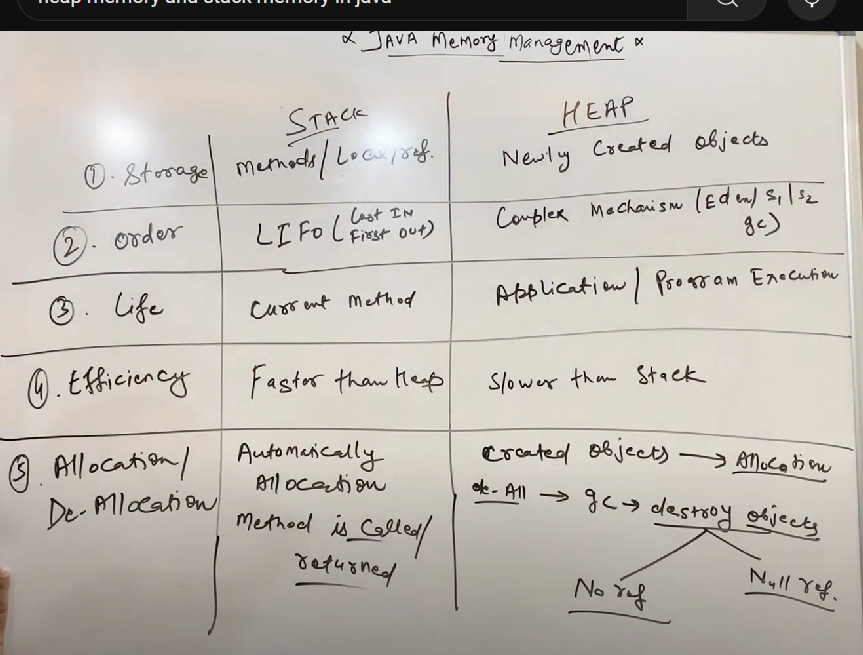 heap memory and stack memory in java
∝ JAVA Memory Management ∝
STACK
HEAP
①. Storage
Methods/Local/ref.
Newly Created objects
②. Order
LIFO (Last IN
First Out)
Complex Mechanism (Eden/S1/S2
gc)
③. Life
Current Method
Application/Program Execution
④. Efficiency
Faster than Heap
Slower than Stack
⑤ Allocation/
De-Allocation
Automatically
Allocation
Method is Called/
returned
Created objects → Allocation
de-All → gc → destroy objects
No ref
Null ref.